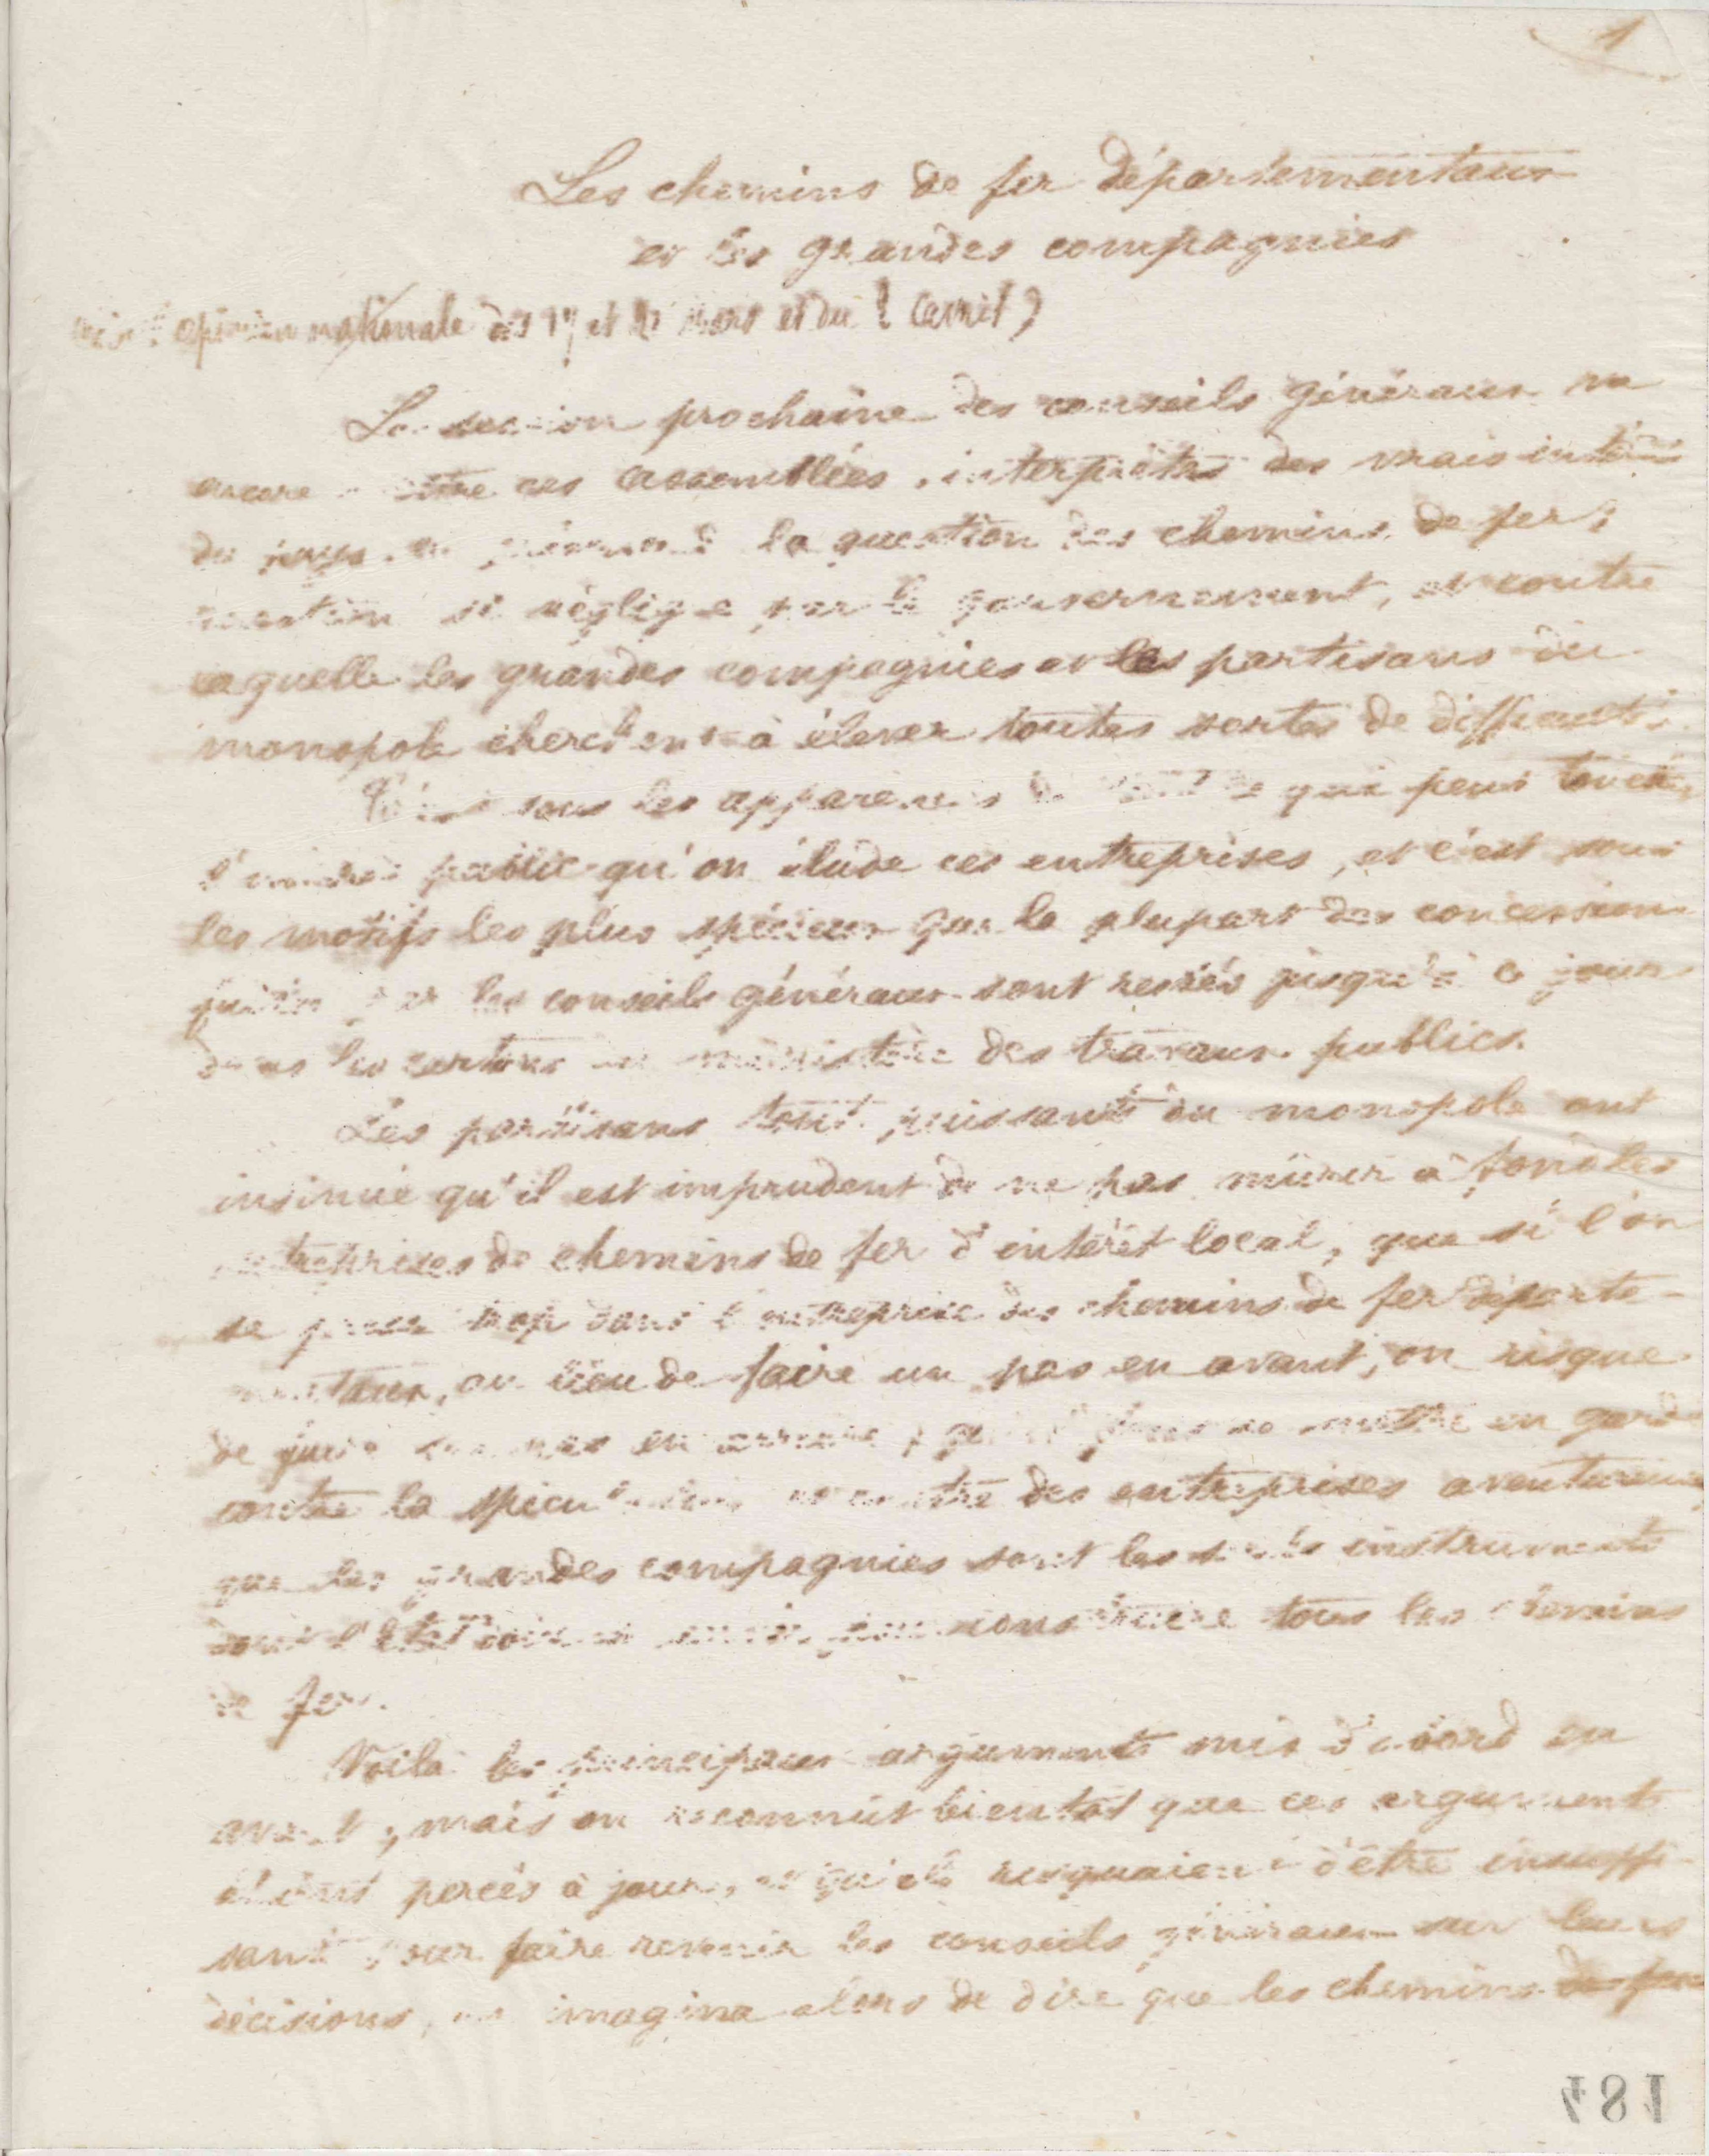 1
Les chemins de fer départementaux
et les grandes compagnies
opinion nationale des 17 et 21 Mars et du
La session prochaine des conseils généraux va
encore mettre ces assemblées, interprètes des vrais intérêts
du pays, en présence de la question des chemins de fer ;
question si négligée par le gouvernement, et contre
laquelle les grandes compagnies et les partisans du
monopole cherchent à élever toutes sortes de difficultés.
C'est sous les apparences de tout ce qui peut toucher
l'intérêt public qu'on élude ces entreprises, et c'est sous
les motifs les plus spécieux que la plupart des concessions
faites par les conseils généraux sont restés jusqu'à ce jour
dans les cartons du ministère des travaux publics.
Les partisans tout puissants du monopole ont
insinué qu'il est imprudent de ne pas mûrir à fond les
entreprises de chemins de fer d'intérêt local, que si l'on
se presse trop dans l'entreprise des chemins de fer départe-
mentaux, au lieu de faire un pas en avant, on risque
de faire un pas en arrière, qu'il faut se mettre en garde
contre la spéculation et contre des entreprises aventureuses
que les grandes compagnies sont les seuls instruments
dont l'État doive se servir pour construire tous les chemins
de fer.
Voilà les principaux arguments mis d'abord en
avant ; mais on reconnût bientôt que ces arguments
étaient percés à jour, et qu'ils risquaient d'être insuffi-
sants pour faire revenir les conseils généraux sur leurs
décisions, on imagina alors de dire que les chemins de fer
184